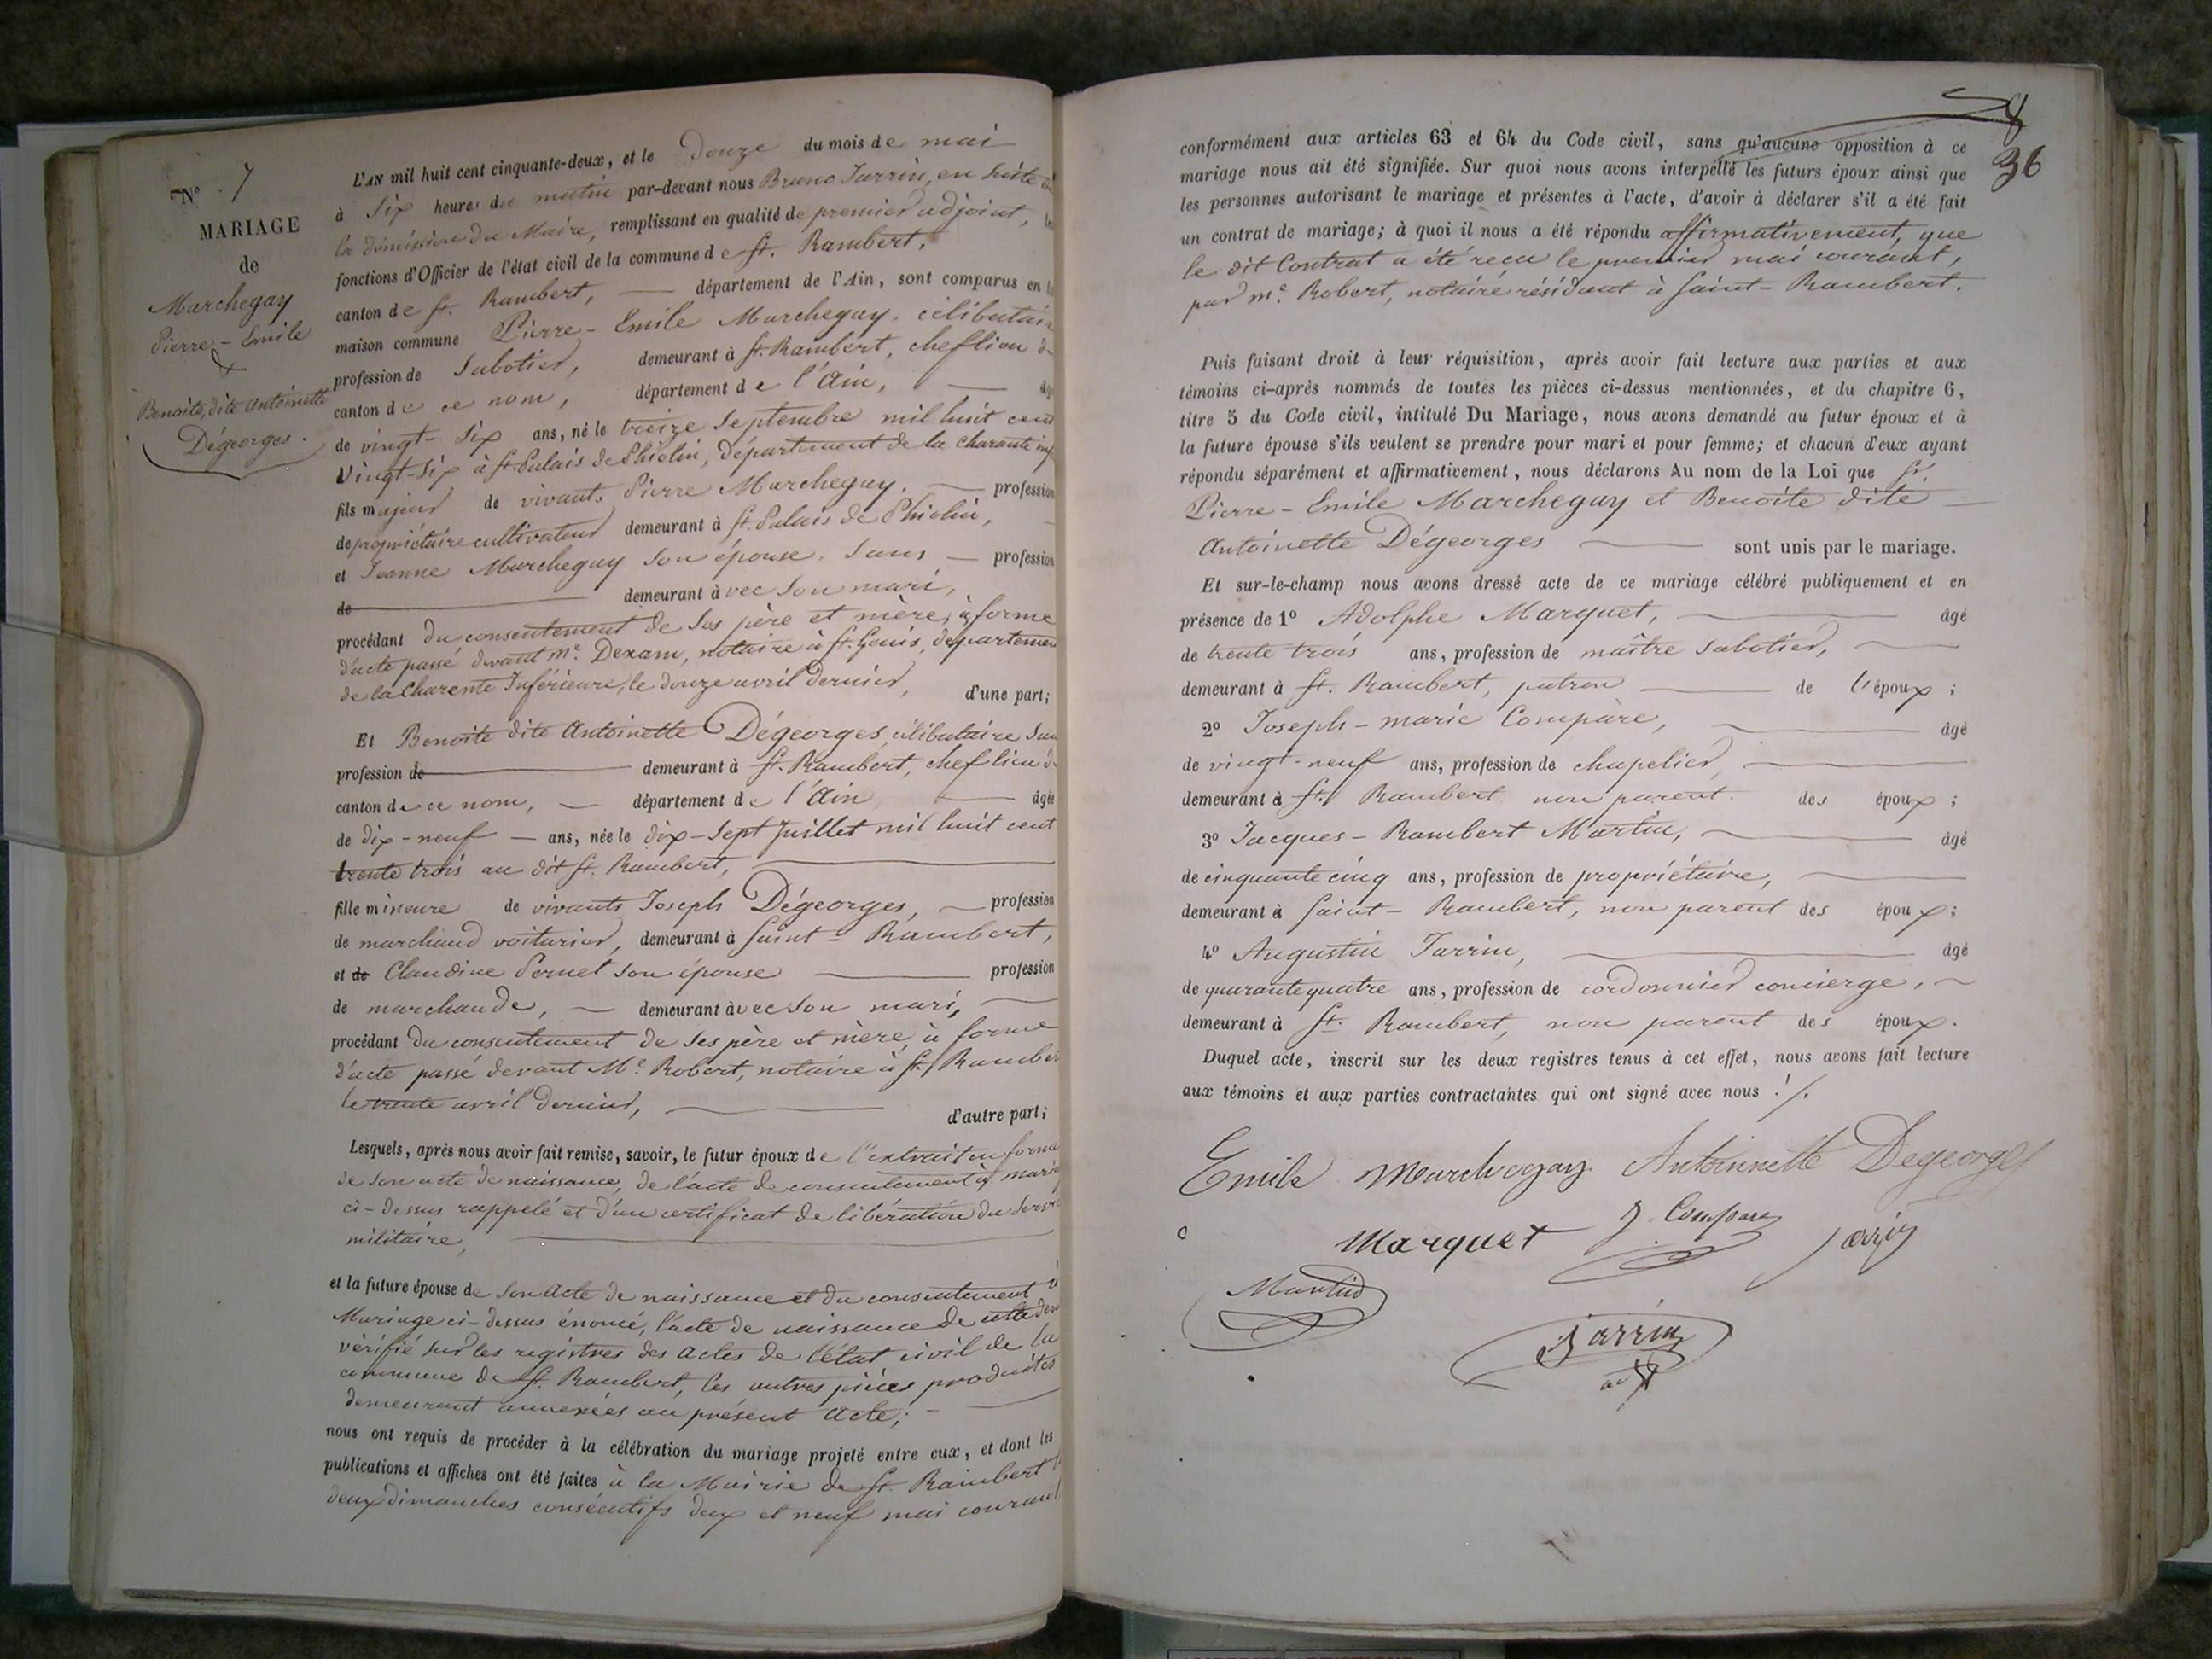 N° 7
MARIAGE
de
Marchegay
Pierre-Emile
&
Benoite, dite Antoinette
Dégeorges.
L'AN mil huit cent cinquante-deux, et le douze du mois de mai
à six heures du matin par-devant nous Bruno Jarrin, en suite de
la démission du Maire, remplissant en qualité de premier adjoint, les
fonctions d'Officier de l'état civil de la commune de St. Rambert,
canton de St. Rambert, département de l'Ain, sont comparus en la
maison commune Pierre-Emile Marchegay, célibataire
profession de sabotier, demeurant à St. Rambert, cheflieu de
canton de ce nom, département de l'Ain, âgé
de vingt-six ans, né le treize septembre mil huit cent
vingt-six à St. Palais de Phiolin, département de la charante inf
fils majeur de vivants Pierre Marchegay, profession
de propriétaire cultivateur demeurant à St. Palais de Phiolin,
et Jeanne Marchegay son épouse, sans profession
de demeurant avec son mari,
procédant du consentement de ses père et mère, à forme
d'acte passé devant me. Dexam, notaire à St. Genis, département
de la Charente Inférieure, le douze avril dernier, d'une part;
Et Benoite dite Antoinette Dégeorges, célibataire sans
profession de demeurant à St. Rambert, chef lieu de
canton de ce nom, département de l'Ain âgée
de dix-neuf ans, née le dix-sept Juillet mil huit cent
trente trois au dit St. Rambert,
fille mineure de vivants Joseph Dégeorges, profession
de marchand voiturier, demeurant à Saint-Rambert,
et de Claudine Pernet son épouse profession
de marchande, demeurant avec son mari,
procédant du consentement de ses père et mère, à forme
d'acte passé devant Me. Robert, notaire à St. Rambert
le trente avril dernier, d'autre part;
Lesquels, après nous avoir fait remise, savoir, le futur époux de l'extrait en forme
de son acte de naissance, de l'acte de consentement à mariage
ci-dessus rappelé et d'un certificat de libération du service
militaire,
et la future épouse de son acte de naissance et du consentement à
Mariage ci-dessus énoncé, l'acte de naissance de cette dern
vérifié sur les registres des actes de l'état civil de la
commune de St. Rambert, les autres pièces produites
demeurant annexées au présent acte;
nous ont requis de procéder à la célébration du mariage projeté entre eux, et dont les
publications et affiches ont été faites à la Mairie de St. Rambert
deux dimanches consécutifs deux et neuf mai courant
36
conformément aux articles 63 et 64 du Code civil, sans qu'aucune opposition à ce
mariage nous ait été signifiée. Sur quoi nous avons interpellé les futurs époux ainsi que
les personnes autorisant le mariage et présentes à l'acte, d'avoir à déclarer s'il a été fait
un contrat de mariage; à quoi il nous a été répondu affirmativement, que
le dit Contrat a été recu le premier mai courant,
par me. Robert, notaire résidant à Saint-Rambert.
Puis faisant droit à leur réquisition, après avoir fait lecture aux parties et aux
témoins ci-après nommés de toutes les pièces ci-dessus mentionnées, et du chapitre 6,
titre 5 du Code civil, intitulé Du Mariage, nous avons demandé au futur époux et à
la future épouse s'ils veulent se prendre pour mari et pour femme; et chacun d'eux ayant
répondu séparément et affirmativement, nous déclarons Au nom de la Loi que Sr.
Pierre-Emile Marchegay et Benoite dite
Antoinette Dégeorges sont unis par le mariage.
Et sur-le-champ nous avons dressé acte de ce mariage célébré publiquement et en
présence de 1° Adolphe Marquet, âgé
de trente trois ans, profession de maître sabotier,
demeurant à St. Rambert, patron de l'époux;
2° Joseph-marie Compère, âgé
de vingt-neuf ans, profession de chapelier,
demeurant à St. Rambert non parent des époux;
3° Jacques-Rambert Martin, âgé
de cinquante cinq ans, profession de propriétaire,
demeurant à Saint-Rambert, non parent des époux;
4° Augustin Jarrin, âgé
de quarante quatre ans, profession de cordonnier concierge,
demeurant à St. Rambert, non parent des époux.
Duquel acte, inscrit sur les deux registres tenus à cet effet, nous avons fait lecture
aux témoins et aux parties contractantes qui ont signé avec nous ./.
Emile Marchegay Antoinette Degeorges
Marquet J. Compare Jarrin
Martin
Jarrin